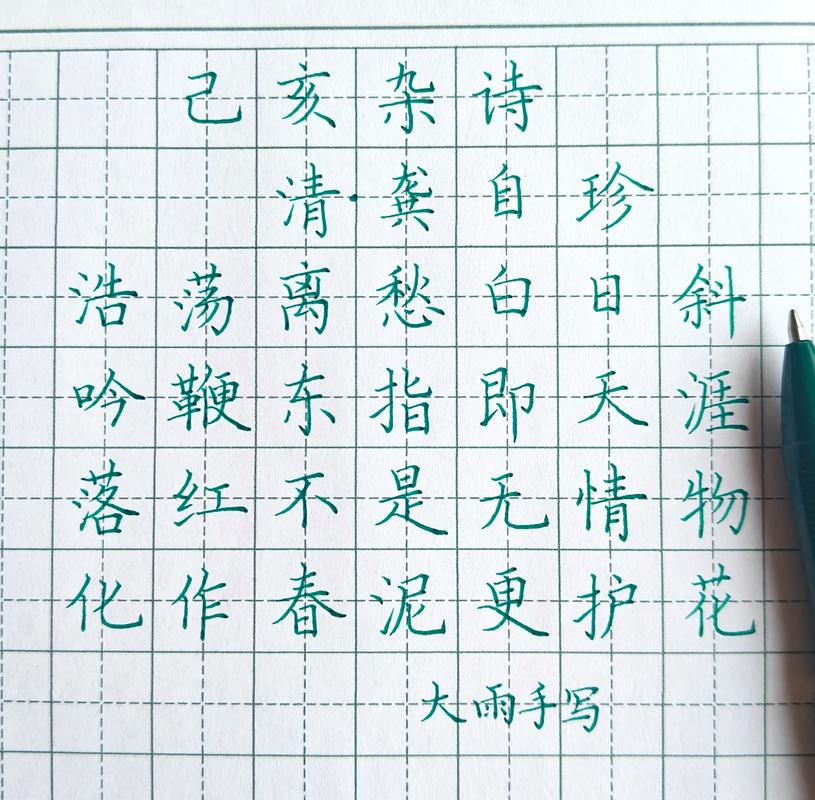 己亥杂诗
清·龚自珍
浩荡离愁白日斜
吟鞭东指即天涯
落红不是无情物
化作春泥更护花
大雨手写